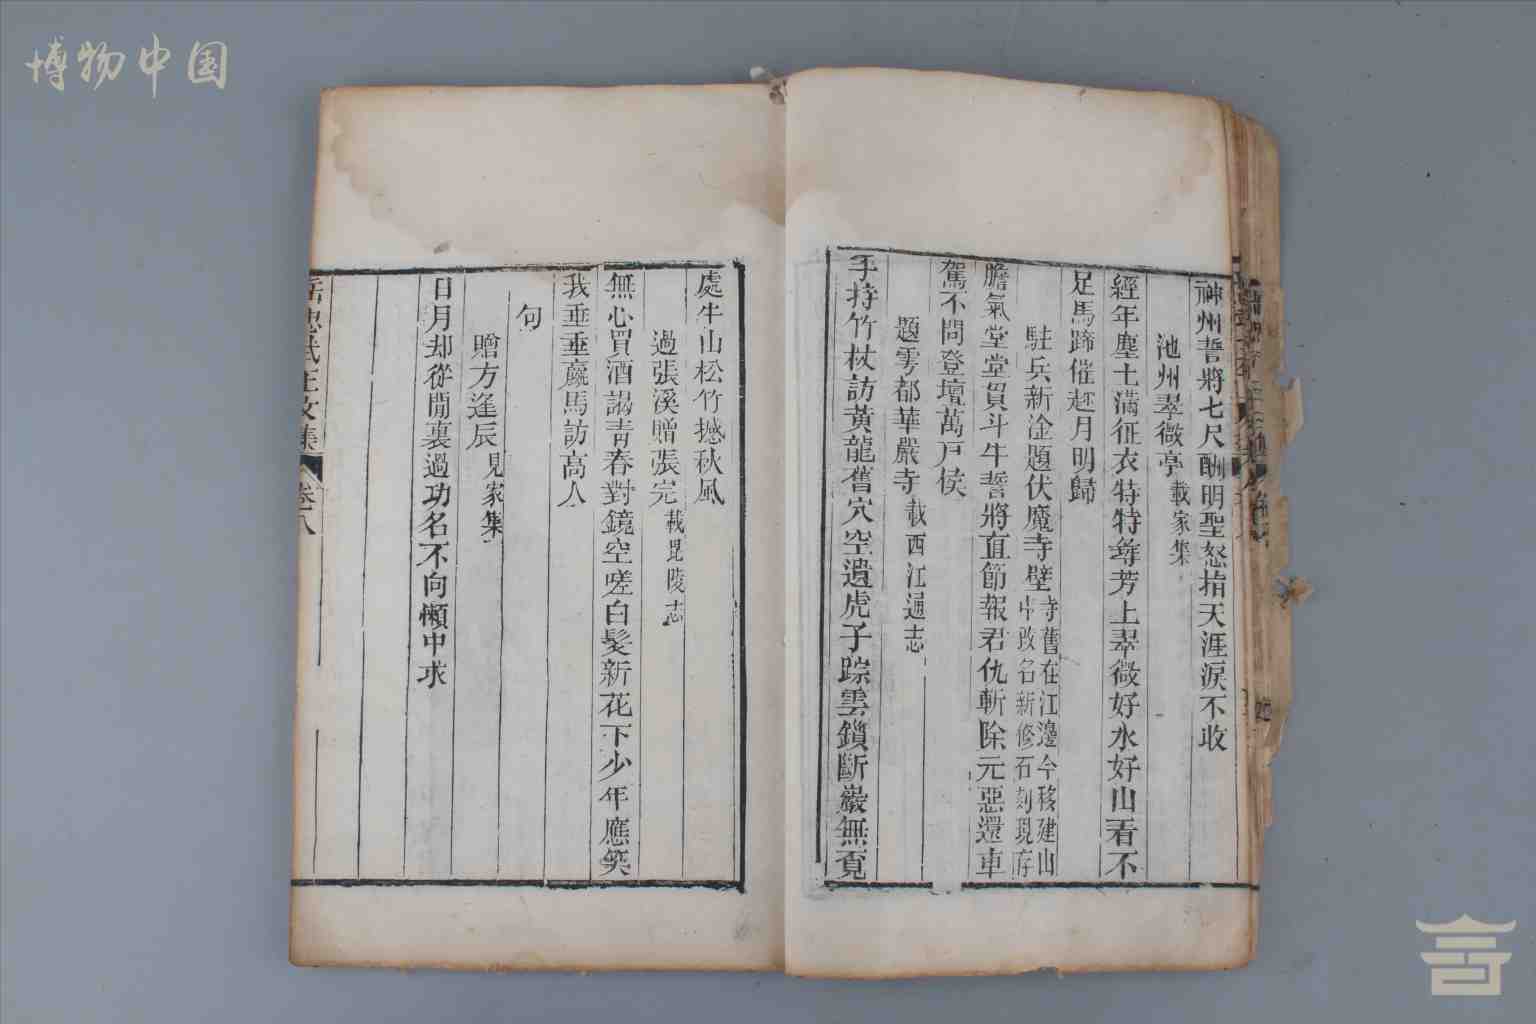 博物中国
神州誓將七尺酬明聖怒指天涯淚不收
池州翠微亭載家集
經年塵土滿征衣特特尋芳上翠微好水好山看不
足馬蹄催趁月明歸
駐兵新淦題伏魔寺壁寺舊在江邊今移建山
中改名新修石刻現存
膽氣堂堂貫斗牛誓將直節報君仇斬除元惡還車
駕不問登壇萬戸侯
題雩都華嚴寺載西江通志
手持竹杖訪黃龍舊穴空遺虎子踪雲鎖斷巖無覔
處半山松竹撼秋風
過張溪贈張完載毘陵志
無心買酒謁青春對鏡空嗟白髮新花下少年應笑
我垂垂羸馬訪高人
句
贈方逢辰見家集
日月却從閒裏過功名不向懶中求
岳忠武王文集
卷八